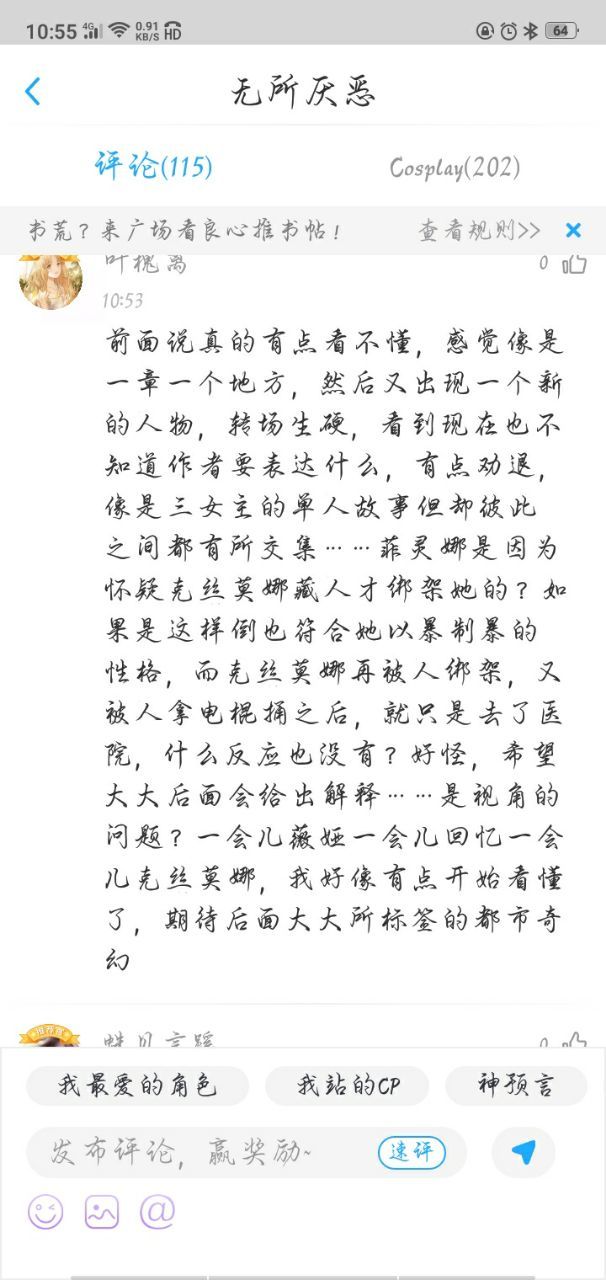 10:55 4G 0.91 KB/S HD 64
无所厌恶
评论(115) Cosplay(202)
书荒？来广场看良心推书帖！ 查看规则>> ×
叶槐离 0
10:53
前面说真的有点看不懂，感觉像是
一章一个地方，然后又出现一个新
的人物，转场生硬，看到现在也不
知道作者要表达什么，有点劝退，
像是三女主的单人故事但却彼此
之间都有所交集……菲灵娜是因为
怀疑克丝莫娜藏人才绑架她的？如
果是这样倒也符合她以暴制暴的
性格，而克丝莫娜再被人绑架，又
被人拿电棍捅之后，就只是去了医
院，什么反应也没有？好怪，希望
大大后面会给出解释……是视角的
问题？一会儿薇娅一会儿回忆一会
儿克丝莫娜，我好像有点开始看懂
了，期待后面大大所标签的都市奇
幻
我最爱的角色 我站的CP 神预言
发布评论，赢奖励~ 速评
@